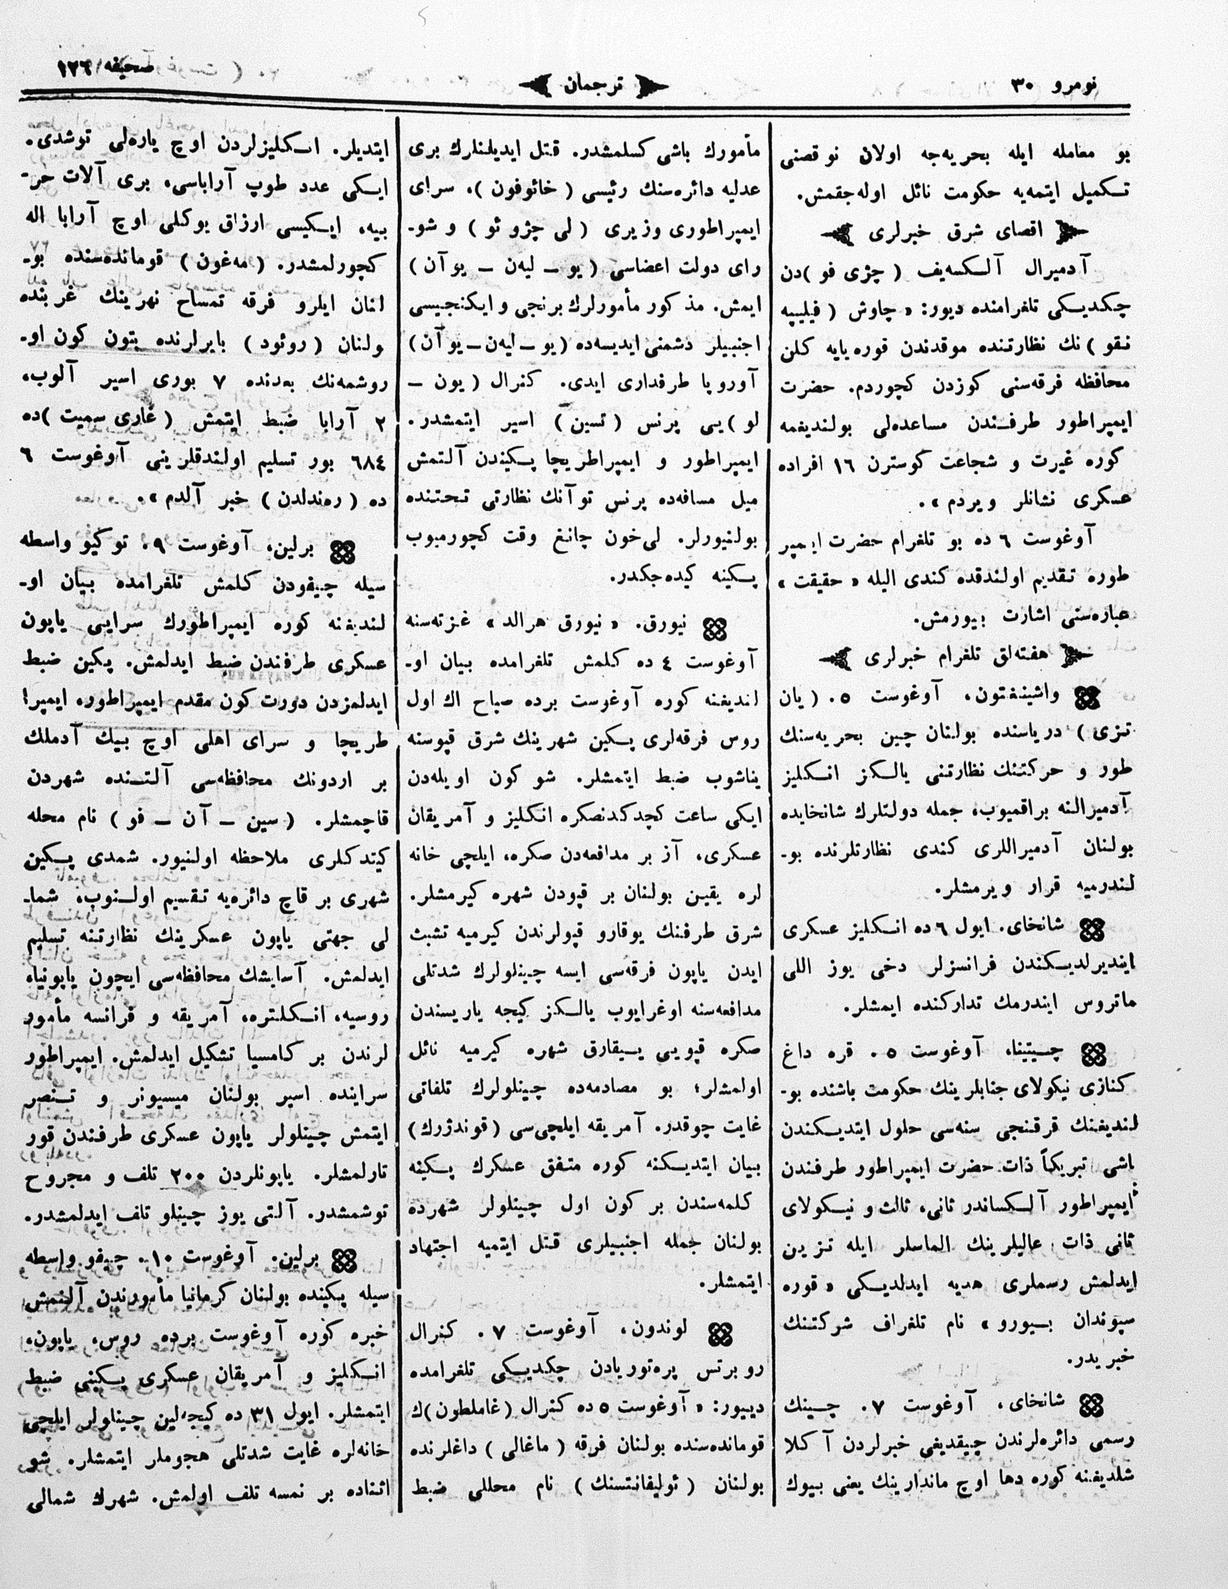 نومرو ٣٠
ترجمان
صحیفه ١٢٦
بو معامله ایله بحریه‌جه اولان نوقصنی
تكمیل ایتمه‌یه حكومت نائل اوله‌جقمش.
اقصای شرق خبرلری
آدمیرال آلكسه‌یف (چژی فو)دن
چكدیكی تلغرامنده دیور: «چاوش (فیلیپه
نقو)نك نظارتنده موقدندن قوره‌یایه كلن
محافظه فرقه‌سنی كوزدن كچوردم. حضرت
ایمپراطور طرفندن مساعده‌لی بولندیغمه
كوره غیرت و شجاعت كوسترن ١٦ افراده
عسكری نشانلر ویردم».
آوغوست ٦ ده بو تلغرام حضرت ایمپر
طوره تقدیم اولندقده كندی الیله «حقیقت»
عباره‌ستی اشارت بیورمش.
هفته‌لق تلغرام خبرلری
واشینغتون، آوغوست ٥. (یان
تزی) دریاسنده بولنان چین بحریه‌سنك
طور و حركتنك نظارتنی یالكز انكلیز
آدمیرالنه براقمیوب، جمله دولتلرك شانخایده
بولنان آدمیراللری كندی نظارتلرنده بو-
لندرمیه قرار ویرمشلر.
شانخای. ایول ٦ ده انكلیز عسكری
ایندیرلدیكندن فرانسزلر دخی یوز اللی
ماتروس ایندرمك تداركنده ایمشلر.
چیتینا، آوغوست ٥. قره داغ
كنازی نیكولای جنابلرینك حكومت باشنده بو-
لندیغنك قرقنجی سنه‌سی حلول ایتدیكندن
باشی تبریكاً ذات حضرت ایمپراطور طرفندن
ایمپراطور آلكساندر ثانی، ثالث و نیكولای
ثانی ذات عالیلرینك الماسلر ایله تزیین
ایدلمش رسملری هدیه ایدلدیكی «قوره
سپوندان بیورو» نام تلغراف شركتنك
خبریدر.
شانخای، آوغوست ٧. چینك
رسمی دائره‌لرندن چیقدیغی خبرلردن آكلا
شلدیغنه كوره دها اوچ ماندارینك یعنی بیوك
مأمورك باشی كسلمشدر. قتل ایدیلنلرك بری
عدلیه دائره‌سنك رئیسی (خائوفون)، سرای
ایمپراطوری وزیری (لی چژو ئو) و شو-
رای دولت اعضاسی (یو ــ لیه‌ن ــ یوآن)
ایمش. مذكور مأمورلرك برنجی و ایكنجیسی
اجنبیلر دشمنی ایدیسه‌ده (یو ــ لیه‌ن ــ یوآن)
آوروپا طرفداری ایدی. كنرال (یون ــ
لو)یی پرنس (تسین) اسیر ایتمشدر.
ایمپراطور و ایمپراطریچا پكیندن آلتمش
میل مسافه‌ده پرنس توآنك نظارتی تحتنده
بولنیورلر. لی‌خون چانغ وقت كچورمیوب
پكینه كیده‌جكدر.
نیورق. «نیورق هرالد» غزته‌سنه
آوغوست ٤ ده كلمش تلغرامده بیان او-
لندیغنه كوره آوغوست برده صباح اك اول
روس فرقه‌لری پكین شهرینك شرق قپوسنه
یناشوب ضبط ایتمشلر. شو كون اویله‌دن
ایكی ساعت كچدكدنصكره انكلیز و آمریقان
عسكری، آز بر مدافعه‌دن صكره، ایلچی خانه
لره یقین بولنان بر قپودن شهره كیرمشلر.
شرق طرفنك یوقارو قپولرندن كیرمیه تشبث
ایدن یاپون فرقه‌سی ایسه چینلولرك شدتلی
مدافعه‌سنه اوغرایوب یالكز كیجه یاریسندن
صكره قپویی یقارق شهره كیرمیه نائل
اولمشلر؛ بو مصادمه‌ده چینلولرك تلفاتی
غایت چوقدر. آمریقه ایلچی‌سی (قوندژرك)
بیان ایتدیكنه كوره متفق عسكرك پكینه
كلمه‌سندن بر كون اول چینلولر شهرده
بولنان جمله اجنبیلری قتل ایتمیه اجتهاد
ایتمشلر.
لوندون، آوغوست ٧. كنرال
روبرتس پره‌توریادن چكدیكی تلغرامده
دییور: «آوغوست ٥ ده كنرال (غاملطون)ك
قومانده‌سنده بولنان فرقه (ماغالی) داغلرنده
بولنان (ئولیفانتسنك) نام محللی ضبط
ایتدیلر. انكلیزلردن اوچ یاره‌لی توشدی.
ایكی عدد طوپ آراباسی، بری آلات حر-
بیه، ایكیسی ارزاق یوكلی اوچ آرابا اله
كچورلمشدر. (مه‌غون) قومانده‌سنده بو-
لنان ایلرو فرقه تمساح نهرینك غربنده
ولنان (روئود) بایرلرنده بتون كون او-
روشمه‌نك بعدنده ٧ بوری اسیر آلوب،
٢ آرابا ضبط ایتمش (غاری سمیت)ده
٦٨٤ بور تسلیم اولندقلرینی آوغوست ٦
ده (ره‌ندلدن) خبر آلدم».
برلین، آوغوست ٩. توكیو واسطه
سیله چیفودن كلمش تلغرامده بیان او-
لندیغنه كوره ایمپراطورك سرایی یاپون
عسكری طرفندن ضبط ایدلمش. پكین ضبط
ایدلمزدن دورت كون مقدم ایمپراطور، ایمپرا
طریچا و سرای اهلی اوچ بیك آدملك
بر اردونك محافظه‌سی آلتنده شهردن
قاچمشلر. (سین ــ آن ــ فو) نام محله
كیتدكلری ملاحظه اولنیور. شمدی پكین
شهری بر قاچ دائره‌یه تقسیم اولنوب، شما-
لی جهتی یاپون عسكرینك نظارتنه تسلیم
ایدلمش. آسایشك محافظه‌سی ایچون یاپونیا،
روسیه، انكلتره، آمریقه و فرانسه مأمور
لرندن بر كامسیا تشكیل ایدلمش. ایمپراطور
سراینده اسیر بولنان میسیونر و تنصر
ایتمش چینلولر یاپون عسكری طرفندن قور
تارلمشلر. یاپونلردن ٢٠٠ تلف و مجروح
توشمشدر. آلتی یوز چینلو تلف ایدلمشدر.
برلین. آوغوست ١٠. چیفو واسطه
سیله پكینده بولنان كرمانیا مأمورندن آلنمش
خبره كوره آوغوست برده روس، یاپون،
انكلیز و آمریقان عسكری پكینی ضبط
ایتمشلر. ایول ٣١ ده كیجه‌لین چینلولر ایلچی
خانه‌لره غایت شدتلی هجوملر ایتمشلر. شو
اثناده بر نمسه تلف اولمش. شهرك شمالی